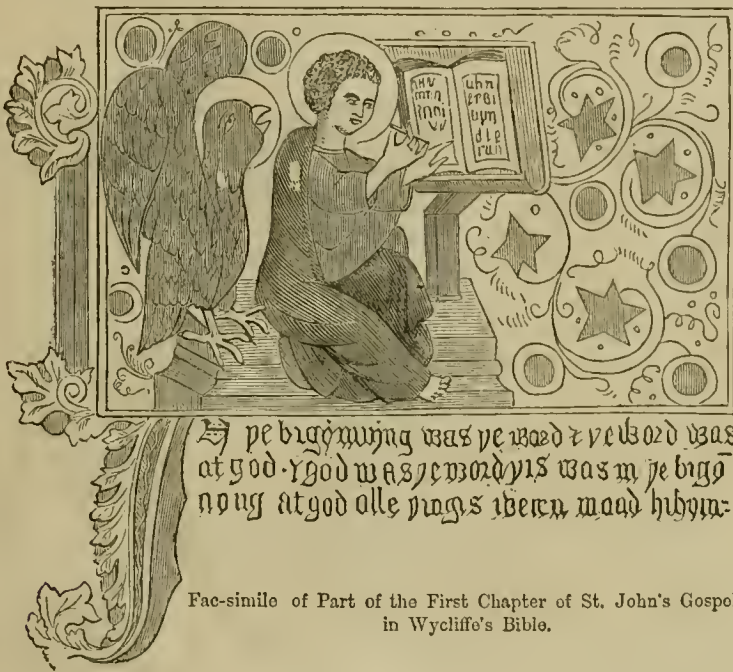 þe bigỹnnyng was þe word & þe word was
at god · & god was þe word þis was in þe bigỹ
nyng at god alle þingis weren maad bi hym:
Fac-simile of Part of the First Chapter of St. John's Gospel
in Wycliffe's Bible.